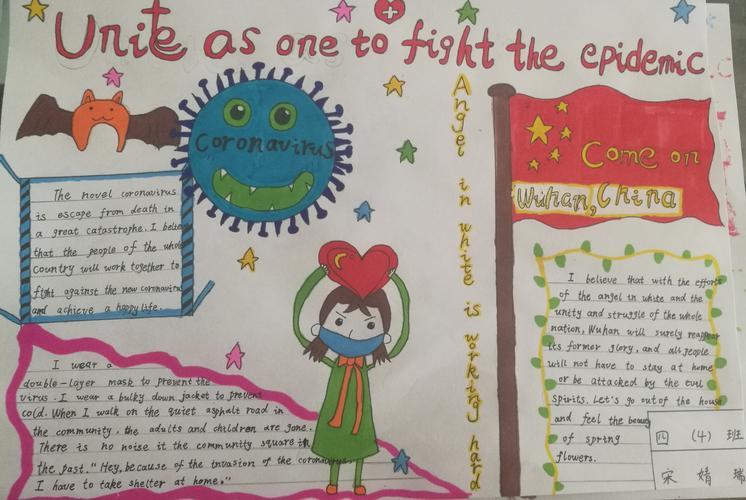 Unite as one to fight the epidemic
Coronavirus
Angel in white is working hard
Come on
Wuhan, China
The novel coronavirus
is escape from death in
a great catastrophe. I believe
that the people of the whole
country will work together to
fight against the new coronavirus
and achieve a happy life.
I wear a
double-layer mask to prevent the
virus. I wear a bulky down jacket to prevent
cold. When I walk on the quiet asphalt road in
the community, the adults and children are gone.
There is no noise it the community square in
the past. "Hey, because of the invasion of the coronavirus,
I have to take shelter at home."
I believe that with the efforts
of the angel in white and the
unity and struggle of the whole
nation, Wuhan will surely reappear
its former glory, and all people
will not have to stay at home
or be attacked by the evil
spirits. Let's go out of the house
and feel the beauty
of spring
flowers.
四 (4) 班
宋 婧 瑞